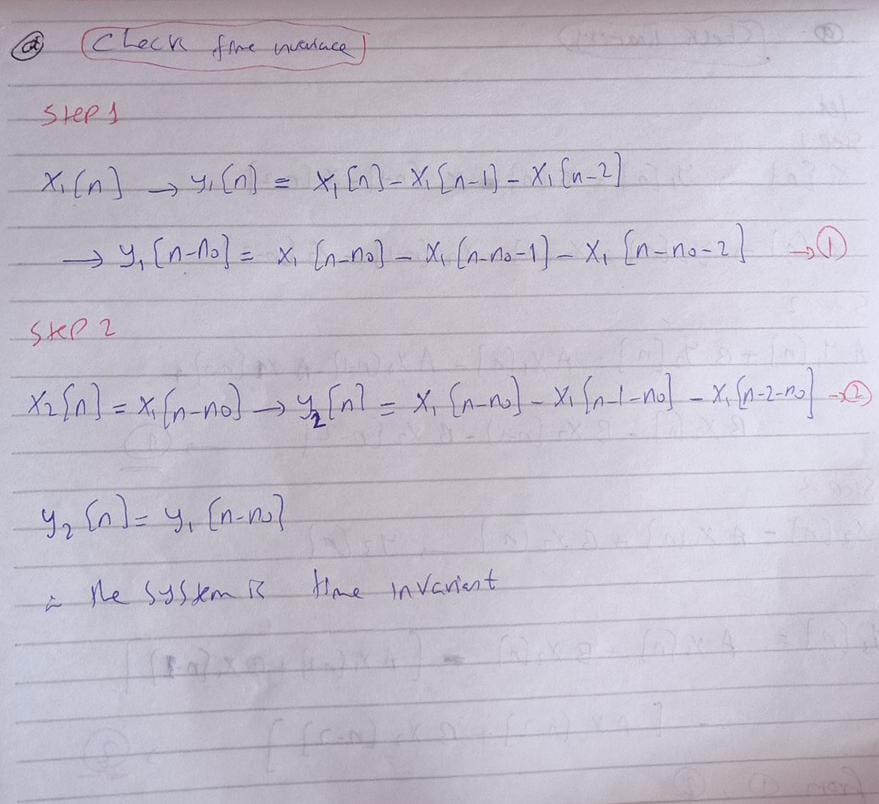 a Check time invariace
Step 1
x₁[n] → y₁[n] = x₁[n] - x₁[n-1] - x₁[n-2]
→ y₁[n-n₀] = x₁[n-n₀] - x₁[n-n₀-1] - x₁[n-n₀-2] → ①
Step 2
x₂[n] = x₁[n-n₀] → y₂[n] = x₁[n-n₀] - x₁[n-1-n₀] - x₁[n-2-n₀] → ②
y₂[n] = y₁[n-n₀]
∴ the system is time invarient